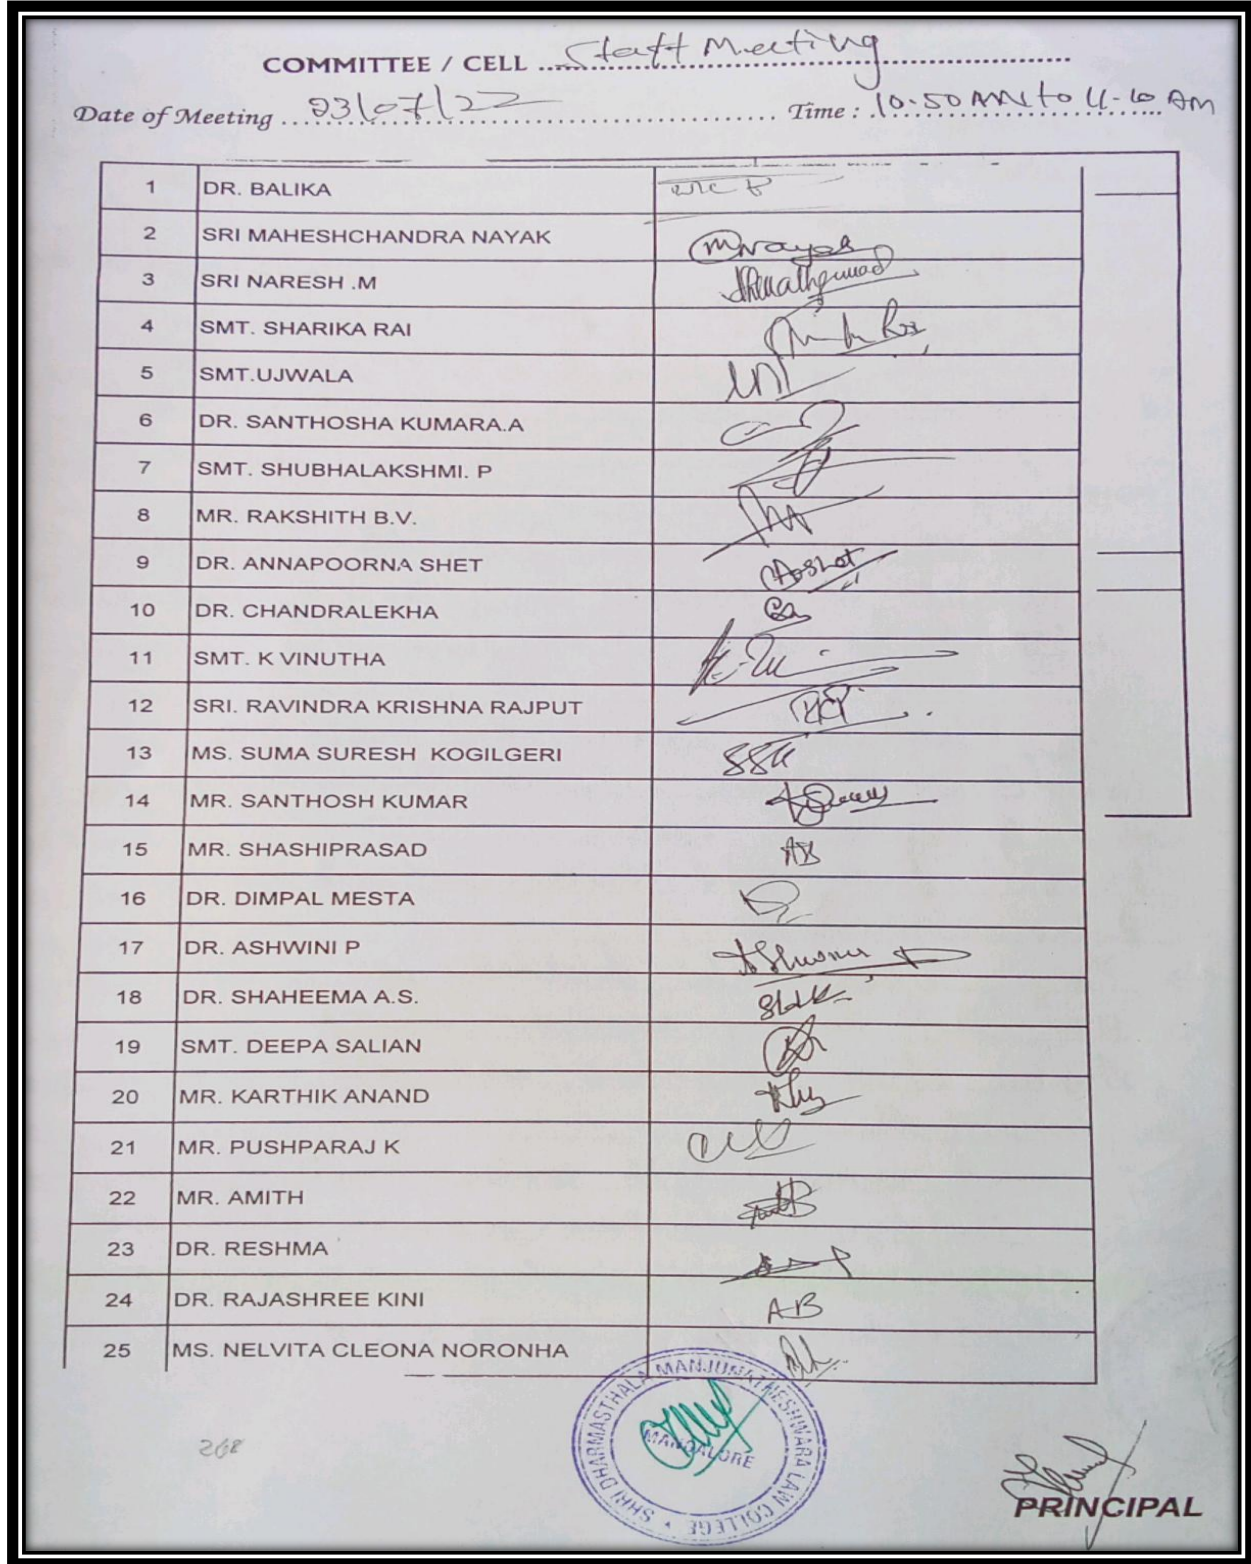 COMMITTEE / CELL Staff Meeting
Date of Meeting 23/07/22 Time : 10-50 AM to 11-10 AM
1 DR. BALIKA
2 SRI MAHESHCHANDRA NAYAK MNayak
3 SRI NARESH .M
4 SMT. SHARIKA RAI
5 SMT.UJWALA
6 DR. SANTHOSHA KUMARA.A
7 SMT. SHUBHALAKSHMI. P
8 MR. RAKSHITH B.V.
9 DR. ANNAPOORNA SHET
10 DR. CHANDRALEKHA
11 SMT. K VINUTHA
12 SRI. RAVINDRA KRISHNA RAJPUT
13 MS. SUMA SURESH KOGILGERI SSK
14 MR. SANTHOSH KUMAR
15 MR. SHASHIPRASAD AB
16 DR. DIMPAL MESTA
17 DR. ASHWINI P
18 DR. SHAHEEMA A.S.
19 SMT. DEEPA SALIAN
20 MR. KARTHIK ANAND
21 MR. PUSHPARAJ K
22 MR. AMITH
23 DR. RESHMA
24 DR. RAJASHREE KINI AB
25 MS. NELVITA CLEONA NORONHA
SHRI DHARMASTHALA MANJUNATHESHWARA LAW COLLEGE
MANGALORE
268
PRINCIPAL